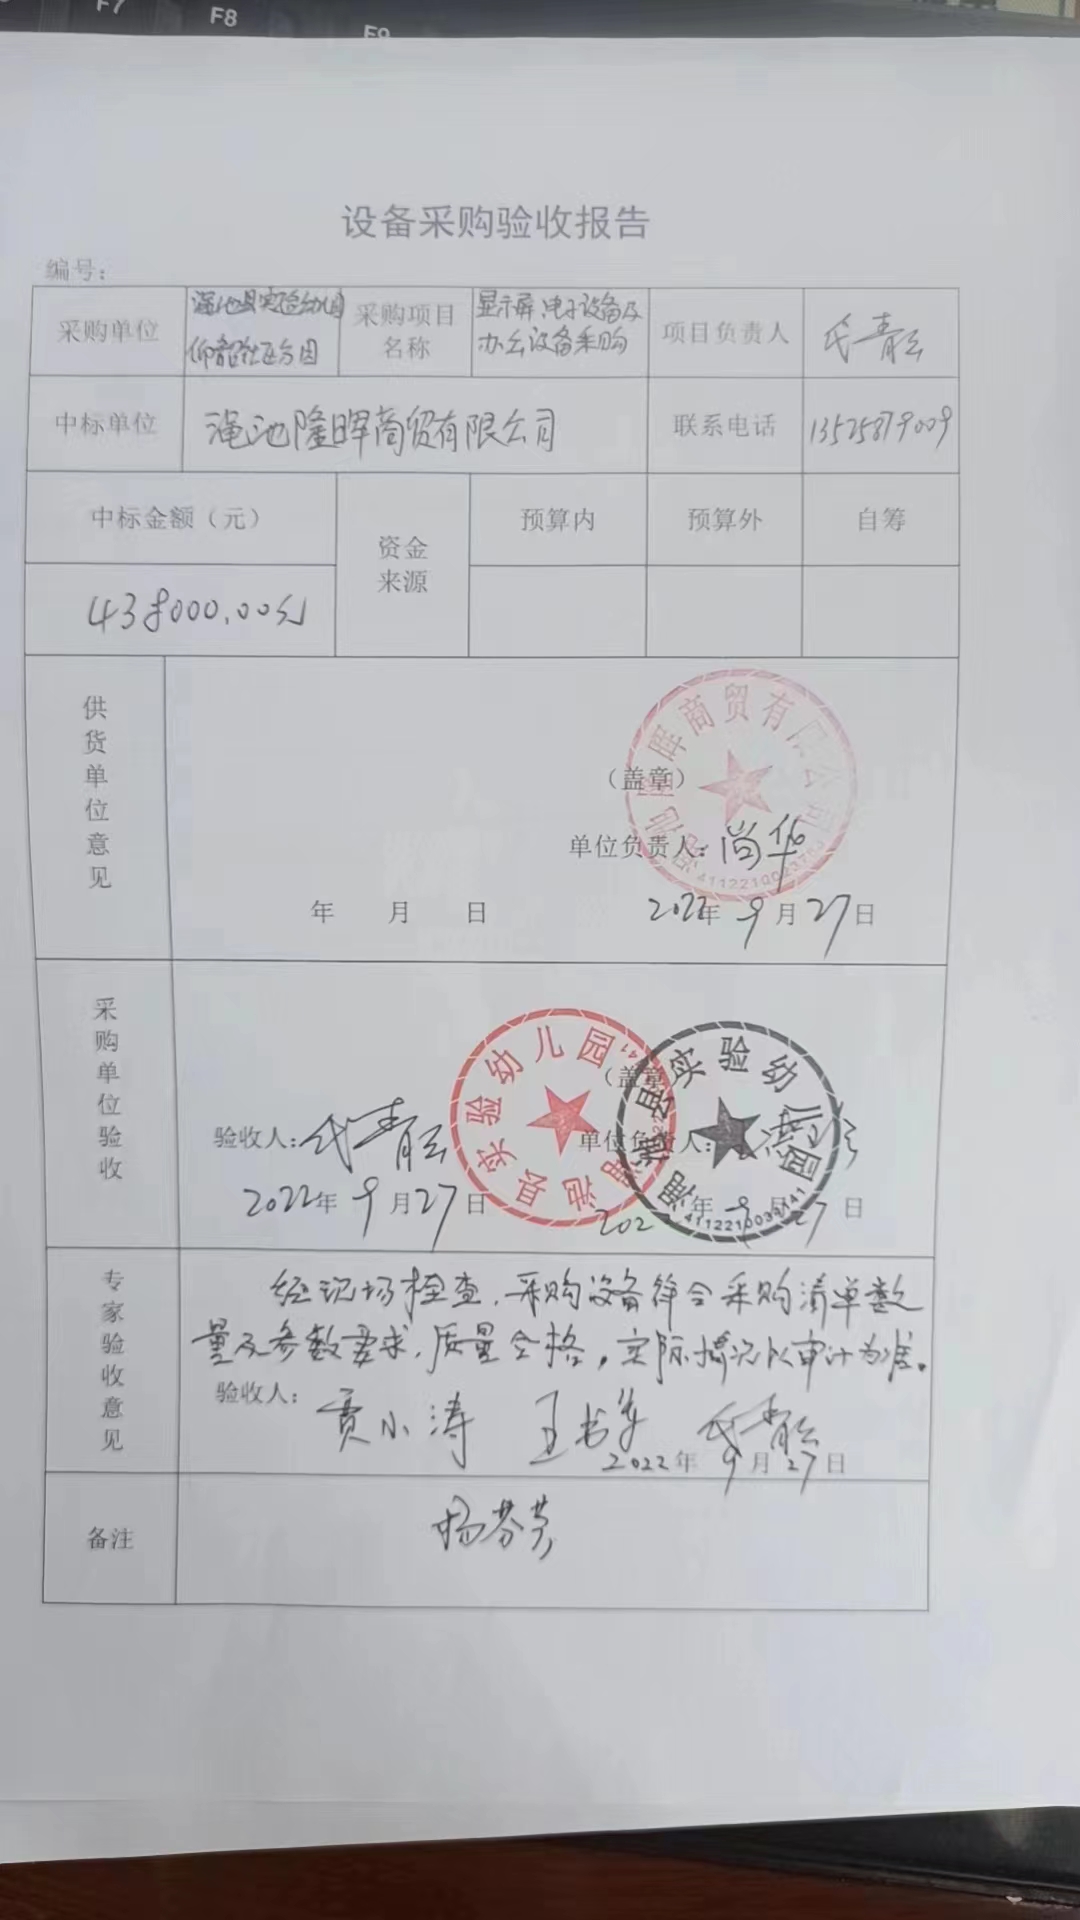 F7
F8
F9
设备采购验收报告
编号：
采购单位
渑池县实验幼儿园
仰韶社区分园
采购项目
名称
显示屏、电子设备及
办公设备采购
项目负责人
中标单位
渑池隆晖商贸有限公司
联系电话
13525879009
中标金额（元）
资金
来源
预算内
预算外
自筹
438000.00元
供货单位意见
渑池隆晖商贸有限公司
（盖章）
单位负责人：尚华
年 月 日
2022年 9月27日
采购单位验收
渑池县实验幼儿园
渑池县实验幼儿园
4112210039141
（盖章）
验收人：
单位负责人：
2022年 9月27日
年 9月27日
专家验收意见
经现场检查，采购设备符合采购清单数
量及参数要求，质量合格，实际情况以审计为准。
验收人：
贾小涛
2022年 9月27日
备注
杨芬芳